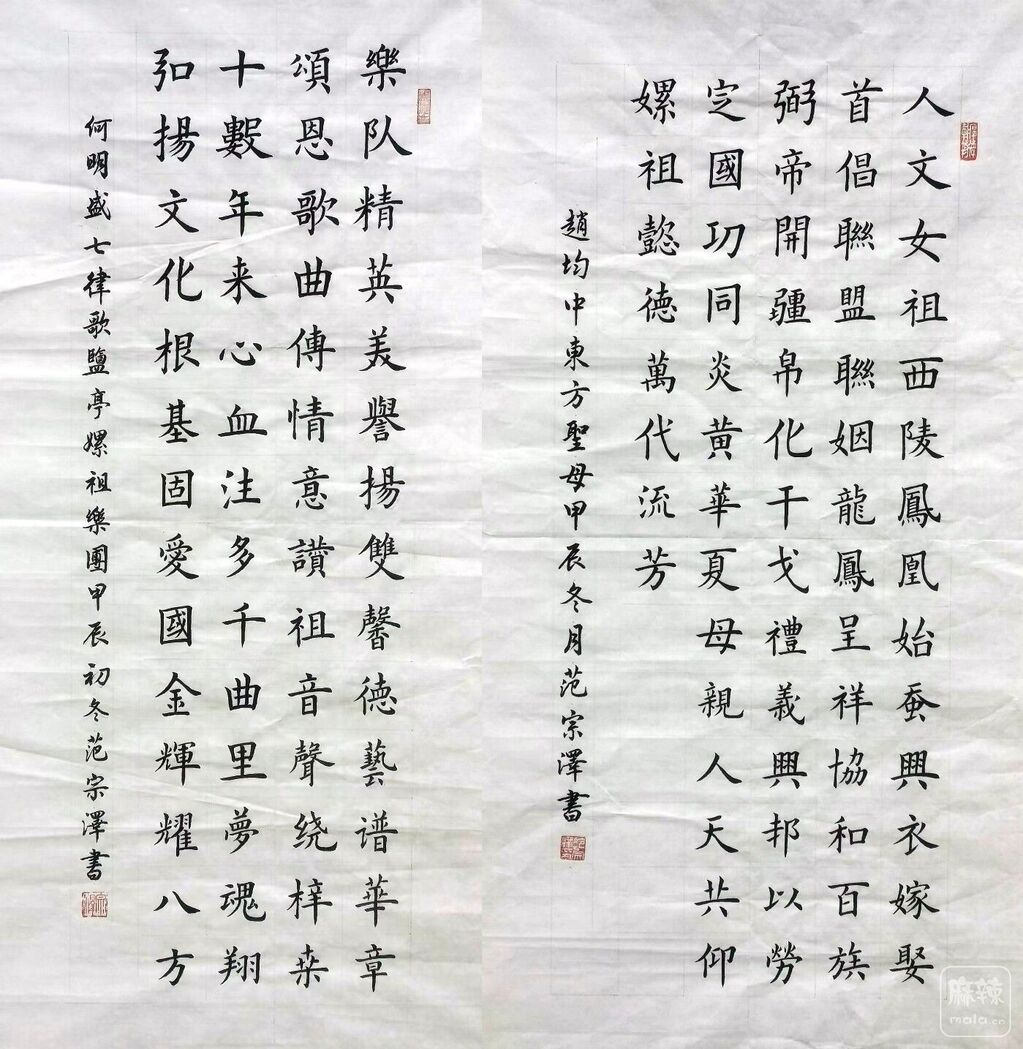 人文女祖西陵鳳凰始蚕興衣嫁娶
首倡聯盟聯姻龍鳳呈祥協和百族
弼帝開疆帛化干戈禮義興邦以勞
定國功同炎黄華夏母親人天共仰
嫘祖懿德萬代流芳
趙均中東方聖母甲辰冬月范宗澤書
樂队精英美譽揚雙馨德藝谱華章
頌恩歌曲傳情意讃祖音聲绕梓桒
十數年来心血注多千曲里夢魂翔
弘揚文化根基固愛國金輝耀八方
何明盛七律歌鹽亭嫘祖樂團甲辰初冬范宗澤書
麻辣
mala.cn